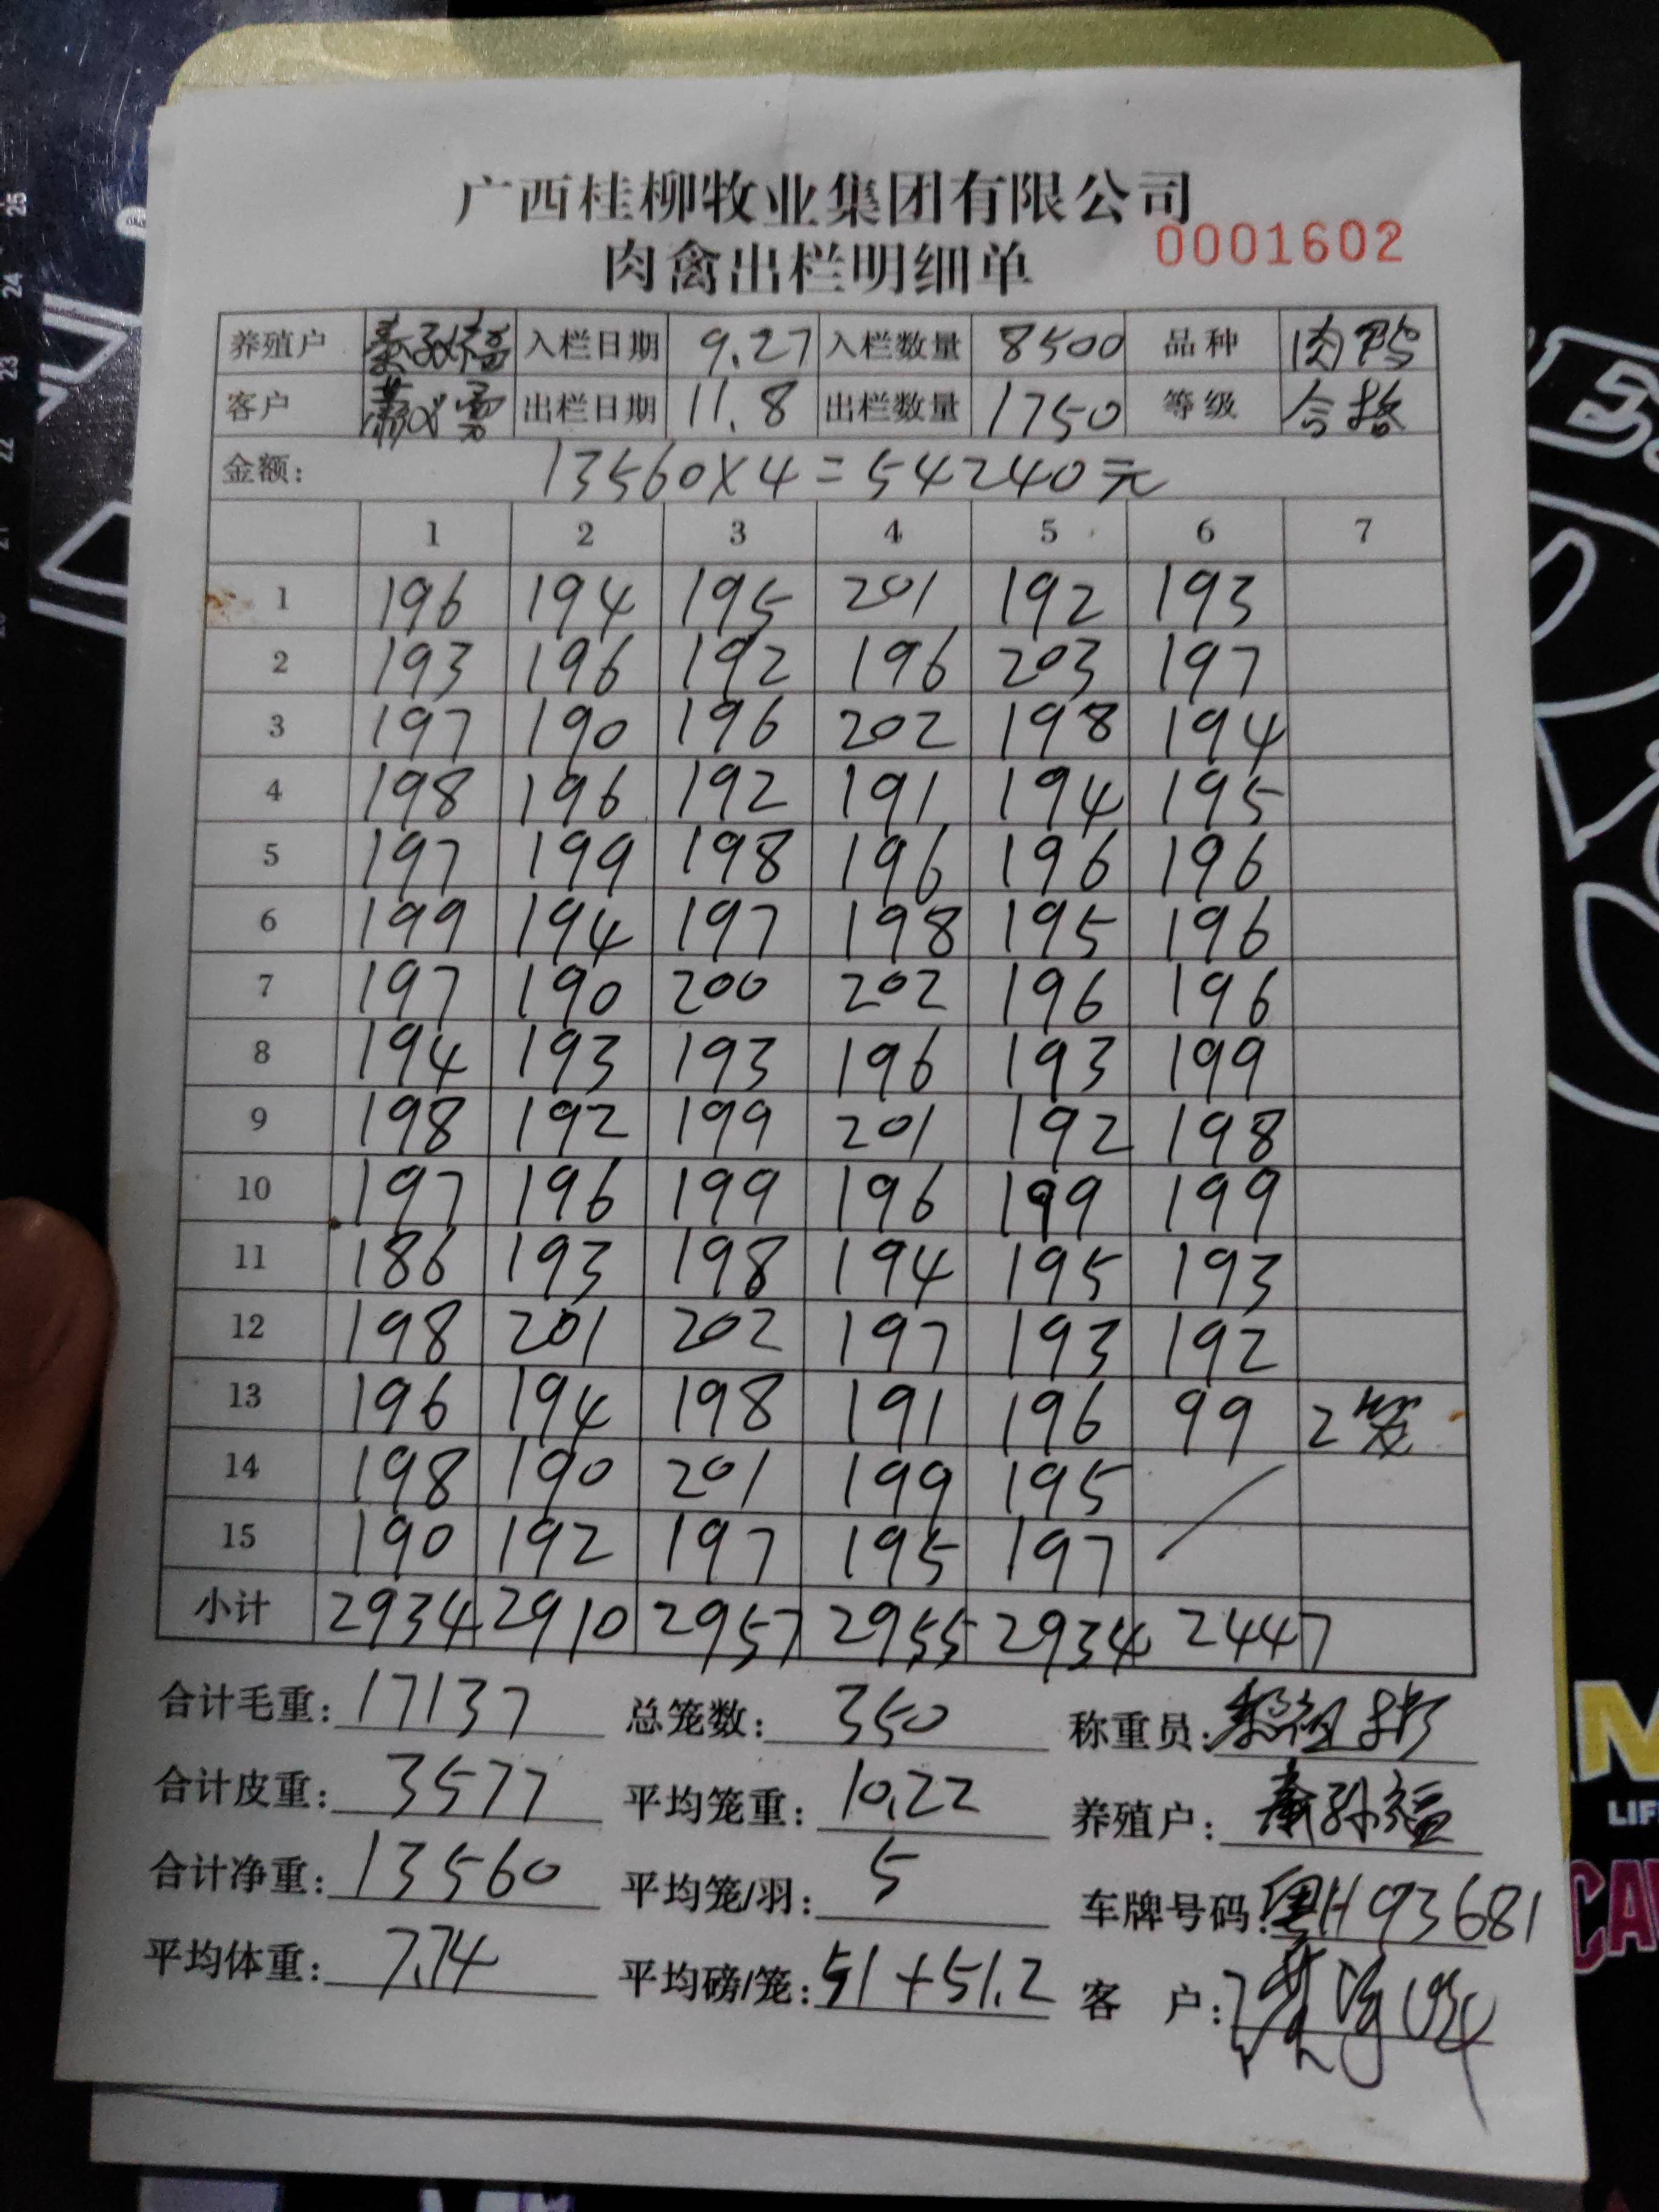 广西桂柳牧业集团有限公司
肉禽出栏明细单 0001602
养殖户 入栏日期 9.27 入栏数量 8500 品种 肉鸭
客户 出栏日期 11.8 出栏数量 1750 等级 合格
金额: 13560×4=54240元
1 2 3 4 5 6 7
1 196 194 195 201 192 193
2 193 196 192 196 203 197
3 197 190 196 202 198 194
4 198 196 192 191 194 195
5 197 199 198 196 196 196
6 199 194 197 198 195 196
7 197 190 200 202 196 196
8 194 193 193 196 193 199
9 198 192 199 201 192 198
10 197 196 199 196 199 199
11 186 193 198 194 195 193
12 198 201 202 197 193 192
13 196 194 198 191 196 99 2
14 198 190 201 199 195
15 190 192 197 195 197
小计 2934 2910 2957 2955 2934 2447
合计毛重: 17137 总笼数: 350 称重员:
合计皮重: 3577 平均笼重: 10.22 养殖户:
合计净重: 13560 平均笼/羽: 5 车牌号码: 粤H93681
平均体重: 7.74 平均磅/笼: 51+51.2 客户:
25
24
23
22
21
LIF
CA